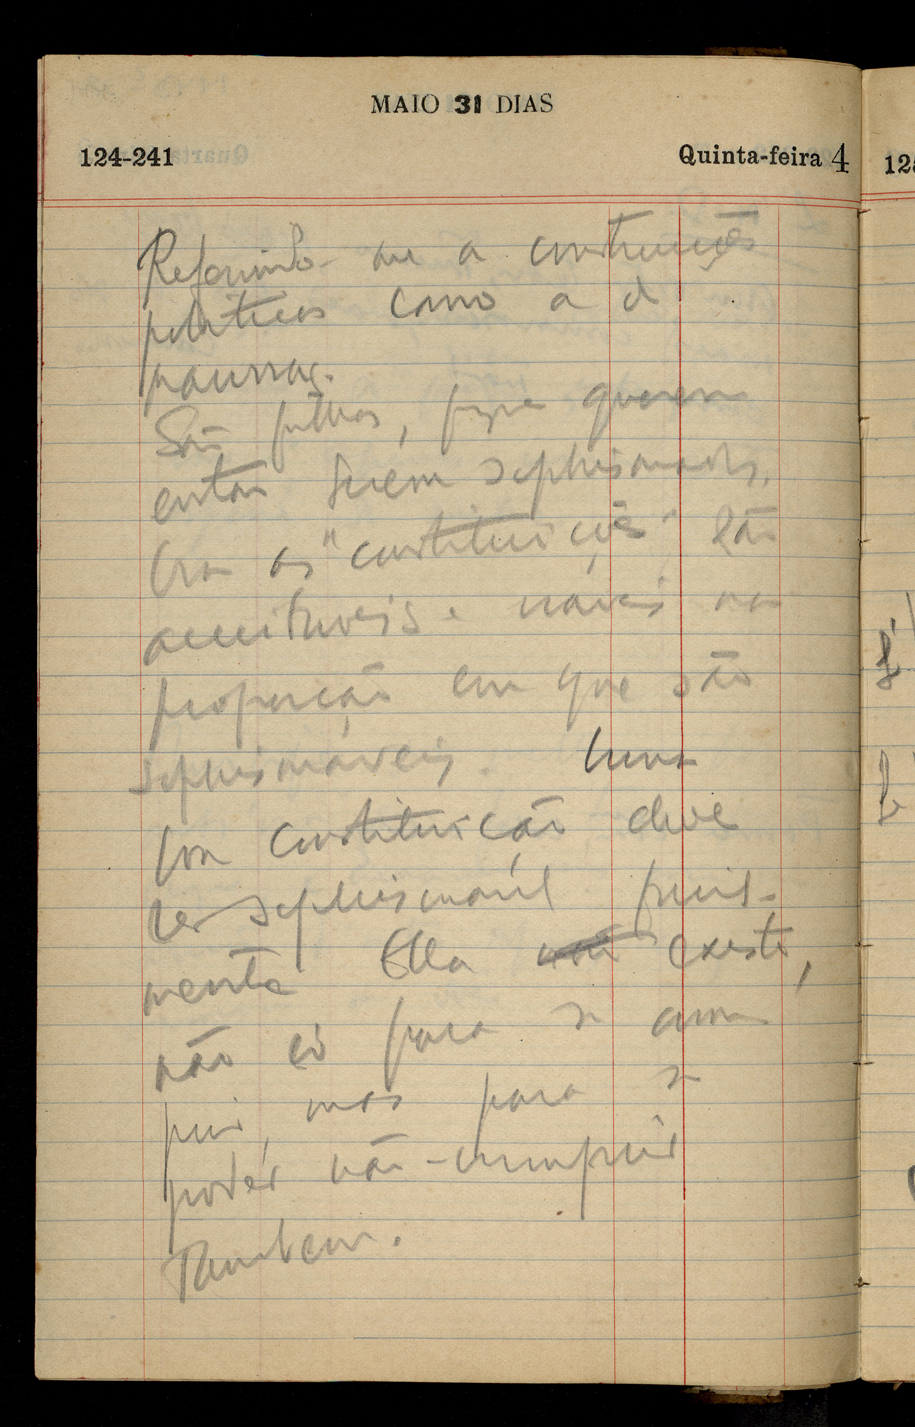 MAIO 31 DIAS
124-241 Quinta-feira 4
Referindo-me a construcções
politicas como a d
São filhos, que querem
então serem sophismados.
Ora as "constituições" são
acceitaveis e viaveis na
proporção em que são
sophismaveis. Uma
boa Constituição deve
ser sophismavel facil-
mente Ella existe,
não só para se cum
prir, mas para se
poder não-cumprir
Tambem.